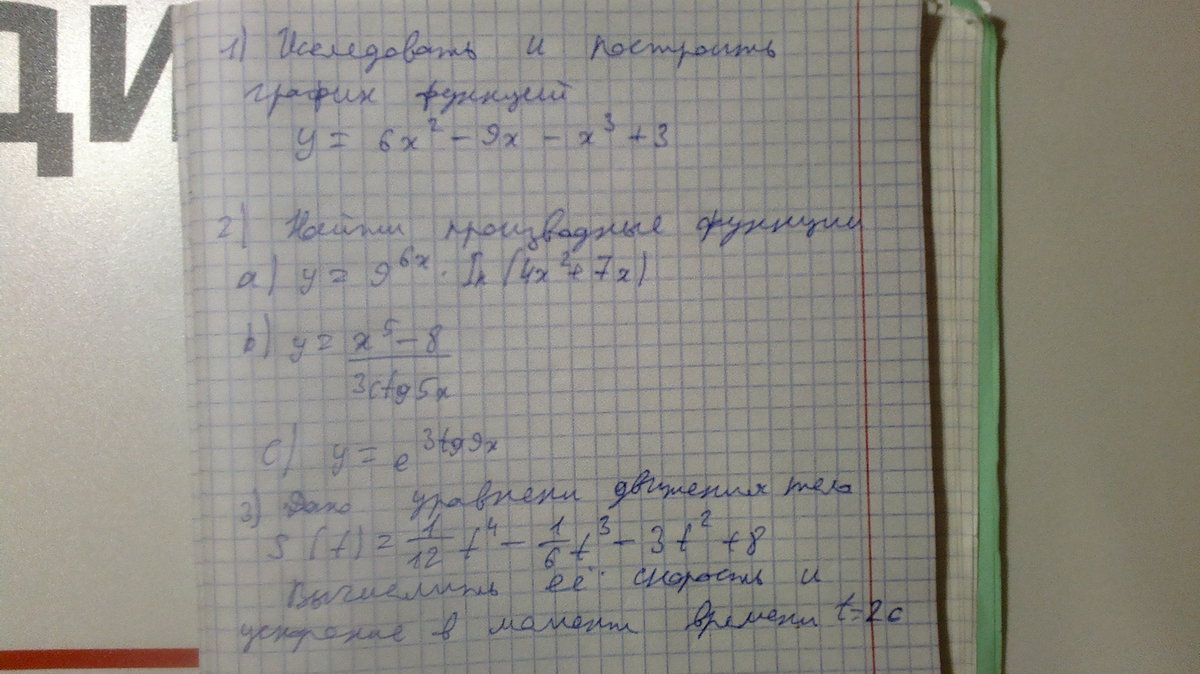 ДИ
1) Иследовать и построить
график функций
y = 6x² - 9x - x³ + 3
2) Найти производные функции
a) y = 9^{6x} · ln (4x² + 7x)
b) y = \frac{x⁵ - 8}{3ctg5x}
c) y = e^{3tg9x}
3) Дано уравнени движения тела
S (t) = \frac{1}{12} t⁴ - \frac{1}{6} t³ - 3t² + 8
Вычислить её скорость и
ускорание в момент времени t=2c